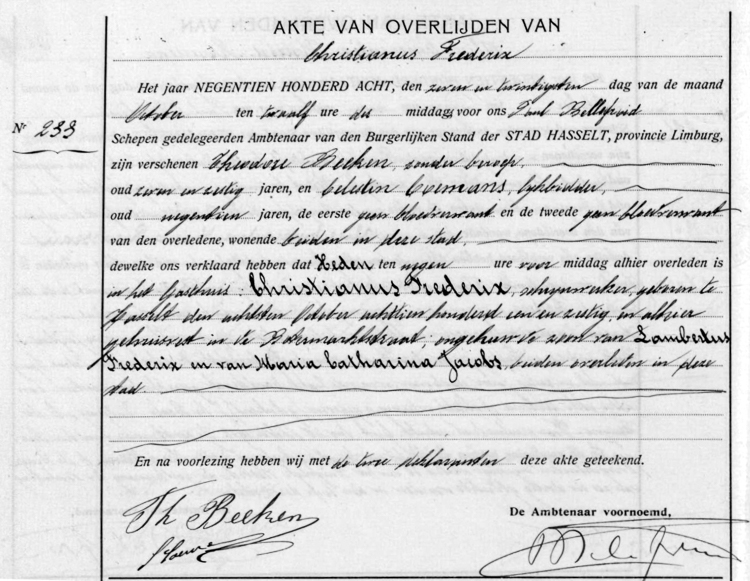 AKTE VAN OVERLIJDEN VAN
Christianus Frederix
Het jaar NEGENTIEN HONDERD ACHT, den zeven en twintigsten dag van de maand
October ten twaalf ure des middags, voor ons Paul Bellefroid
Nr 233
Schepen gedelegeerden Ambtenaar van den Burgerlijken Stand der STAD HASSELT, provincie Limburg,
zijn verschenen Theodore Beeken, zonder beroep,
oud zeven en zestig jaren, en Celestin Coemans, lijkbidder,
oud negentien jaren, de eerste geen bloedverwant en de tweede geen bloedverwant
van den overledene, wonende beiden in deze stad.
dewelke ons verklaard hebben dat Heden ten negen ure voor middag alhier overleden is
in het Gasthuis: Christianus Frederix, schrijnwerker, geboren te
Hasselt den achtsten October achttien honderd een en zestig, en alhier
gehuisvest in de Botermarktstraat, ongehuwde zoon van Lambertus
Frederix en van Maria Catharina Jacobs, beiden overleden in deze
stad.
En na voorlezing hebben wij met de twee deklaranten deze akte geteekend.
De Ambtenaar voornoemd,
Th Beeken